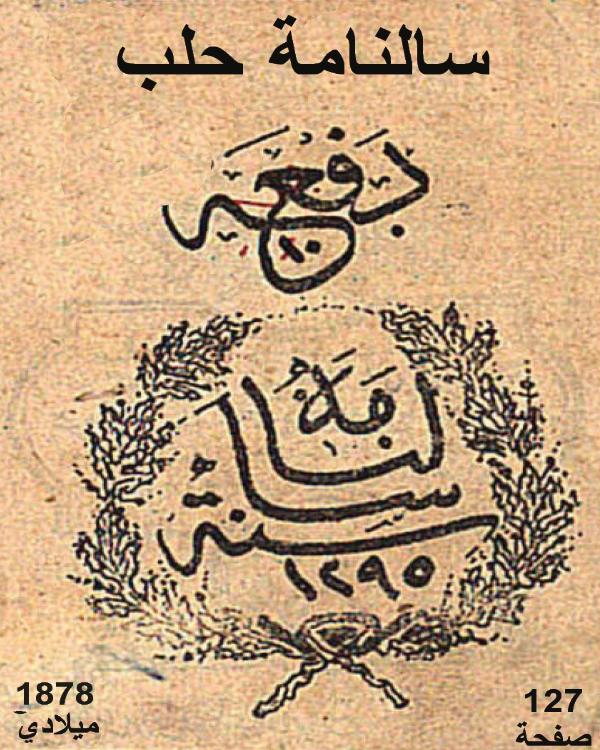 سالنامة حلب
دفعه
١٠
سالنامه
سنة
١٢٩٥
1878
ميلادي
127
صفحة